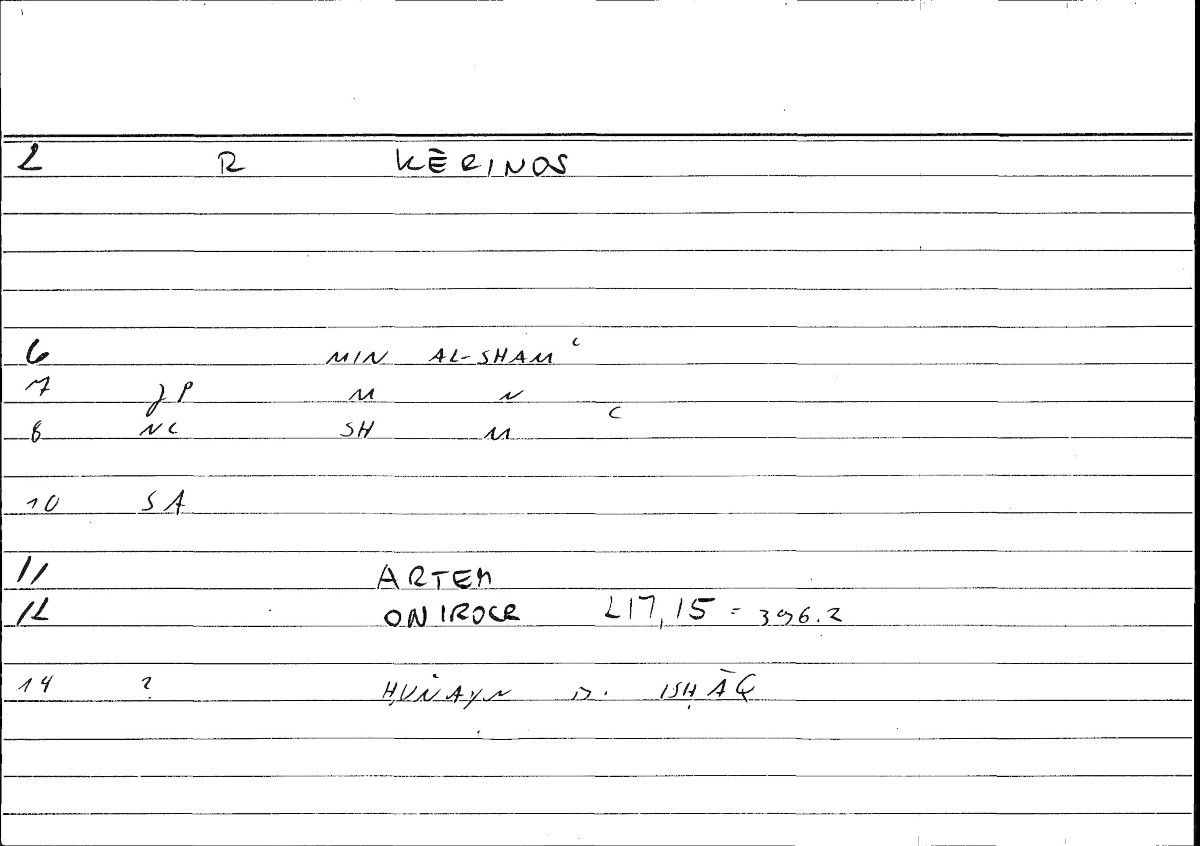 2 R KĒRINOS
6 MIN AL-SHAM ͨ
7 JP M N
8 NC SH M ͨ
10 SA
11 ARTEM
12 ONIROCR 217,15 = 396.2
14 ? ḤUNAYN B. ISḤĀQ